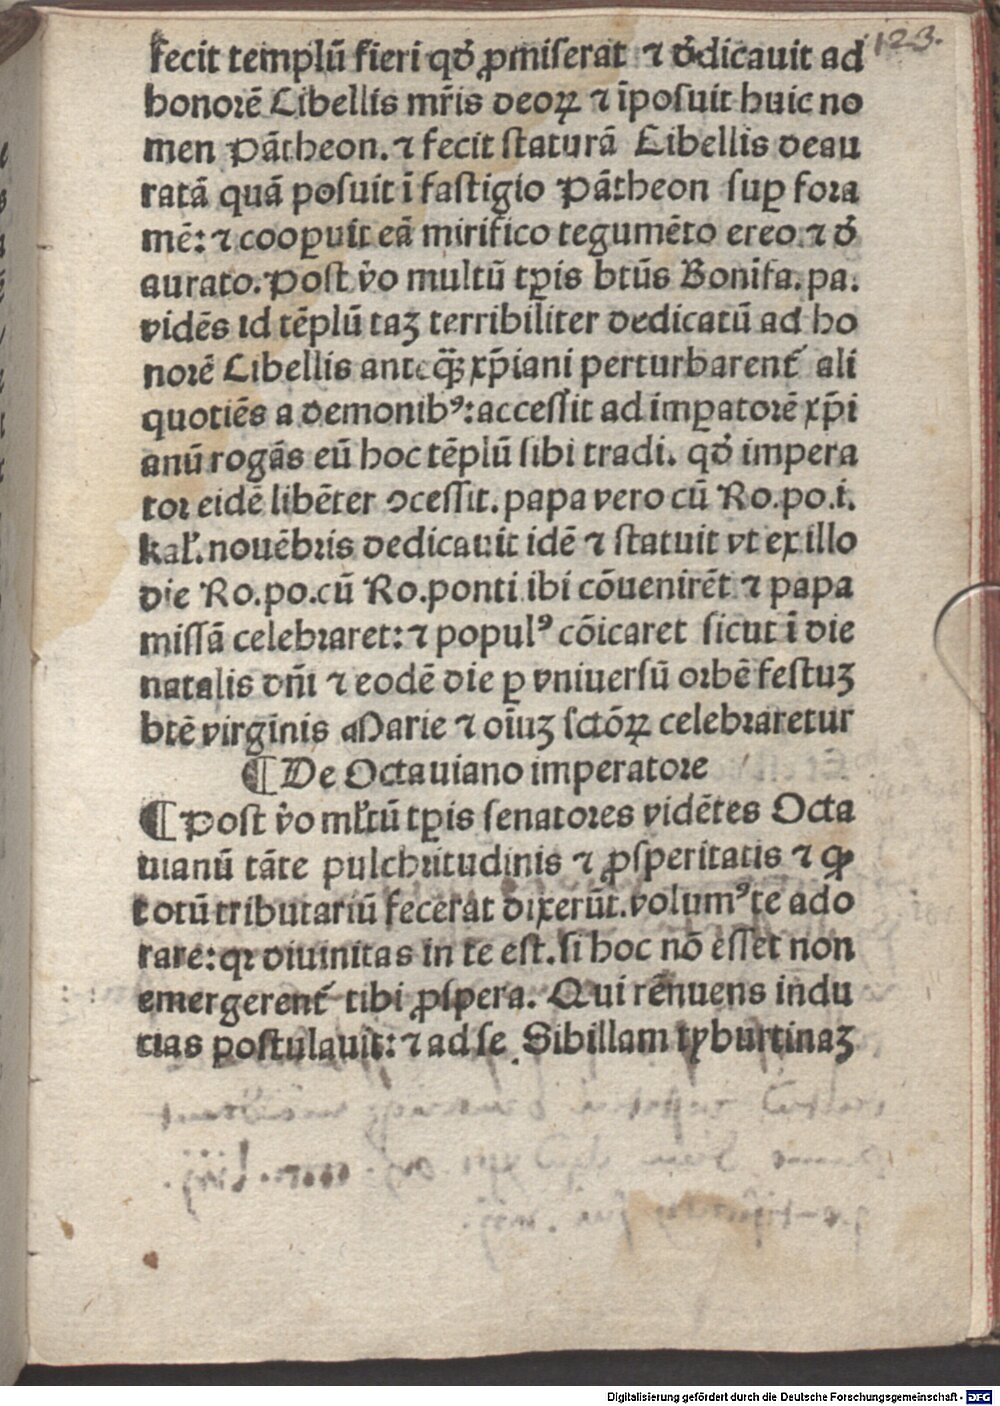 123.
fecit templū fieri qđ ꝓmiserat ⁊ đdicauit ad
honorē Libellis mr̄is deoꝝ ⁊ īposuit huic no
men Pātheon. ⁊ fecit staturā Libellis deau
ratā quā posuit ī fastigio Pātheon suꝑ fora
mē: ⁊ cooꝑuit eā mirifico tegumēto ereo ⁊ đ
aurato. Post v̊o multū tꝑis btūs Bonifa. pa.
vidēs id tēplū taꝫ terribiliter dedicatū ad ho
norē Libellis anteq̄ꝫ xp̄iani perturbarent᷑ ali
quotiēs a demonibꝰ: accessit ad imꝑatorē xp̄i
anū rogās eū hoc tēplū sibi tradi. qđ impera
tor eidē libēter ↄcessit. papa vero cū Ro. po. i.
kal᷑. nouēbris dedicauit idē ⁊ statuit vt ex illo
die Ro. po. cū Ro. ponti ibi cōuenirēt ⁊ papa
missā celebraret: ⁊ populꝰ cōicaret sicut ī die
natalis dn̄i ⁊ eodē die ꝑ vniuersū orbē festuꝫ
btē virginis Marie ⁊ oīuꝫ sctōꝝ celebraretur
¶ De Octauiano imperatore
¶ Post v̊o ml̄tū tꝑis senatores vidētes Octa
uianū tāte pulchritudinis ⁊ ꝓsperitatis ⁊ ꝙ
totū tributariū fecerat dixerūt. volumꝰ te ado
rare: qꝛ diuinitas in te est. si hoc nō esset non
emergerent᷑ tibi ꝓspera. Qui rēnuens indu
tias postulauit: ⁊ ad se Sibillam tyburtinaꝫ
Digitalisierung gefördert durch die Deutsche Forschungsgemeinschaft - DFG